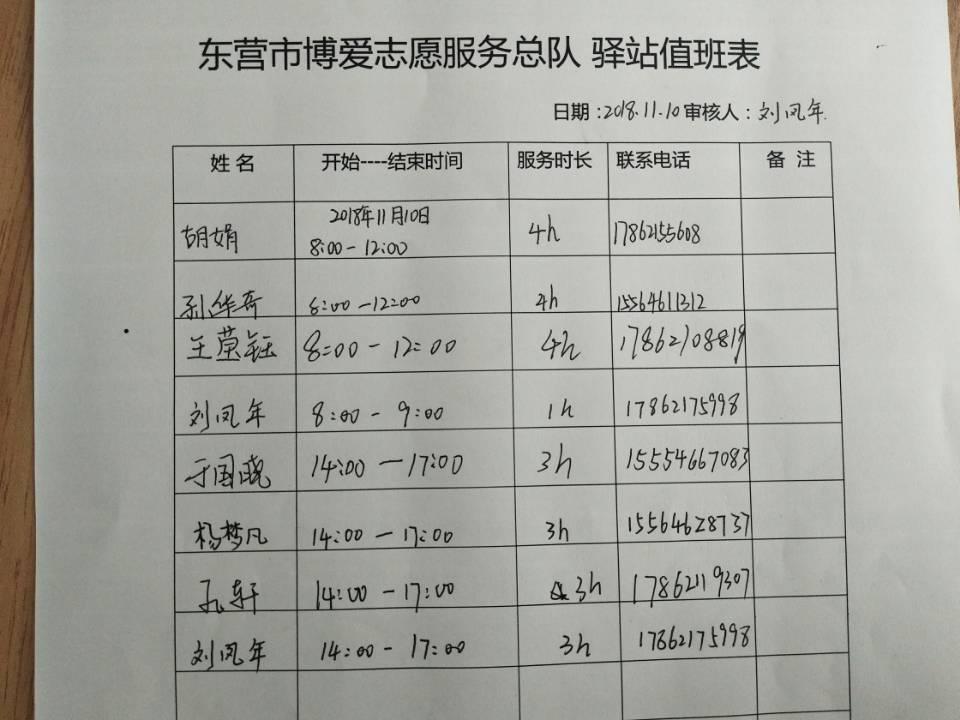 东营市博爱志愿服务总队 驿站值班表
日期:2018.11.10 审核人:刘凤年
姓名 开始----结束时间 服务时长 联系电话 备注
胡娟 2018年11月10日 8:00-12:00 4h 17862155608
孙华奇 8:00-12:00 4h 15564611312
王萤钰 8:00-12:00 4h 17862108819
刘凤年 8:00-9:00 1h 17862175998
于国晓 14:00-17:00 3h 15554667083
杨梦凡 14:00-17:00 3h 15564628737
孔轩 14:00-17:00 3h 17862119307
刘凤年 14:00-17:00 3h 17862175998